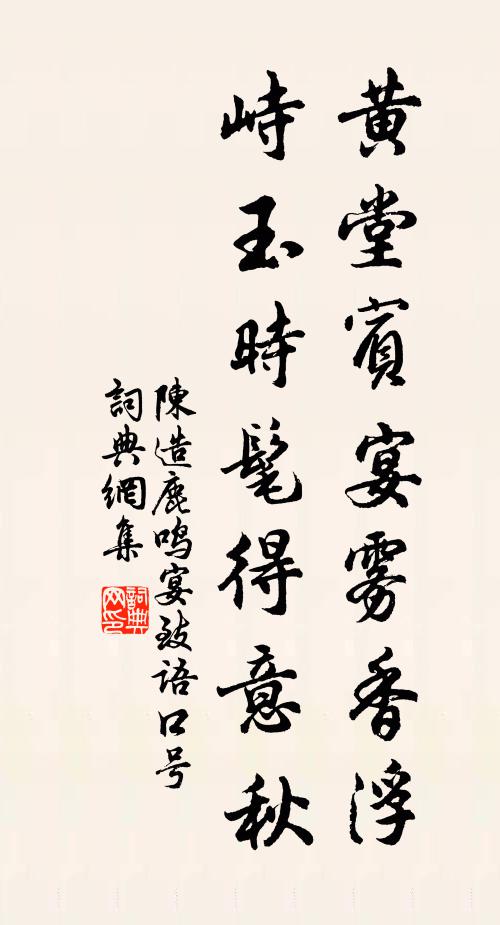 黄堂賓宴雾香浮
峙玉時髦得意秋
陳造鹿鳴宴致语口号
詞典網集
詞典网印